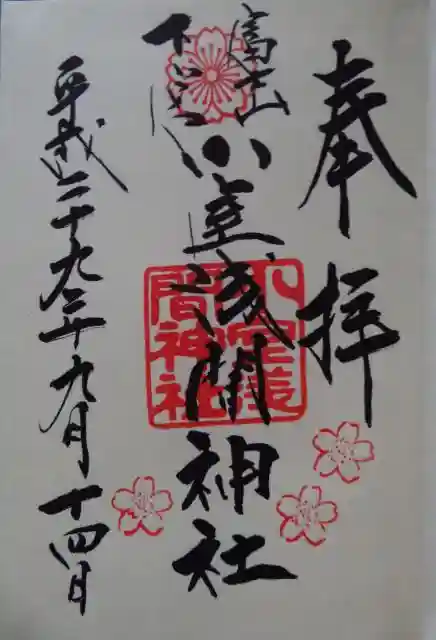 奉拝
富士山
下宮
小室浅間神社
小室浅間神社
平成二十九年九月十四日